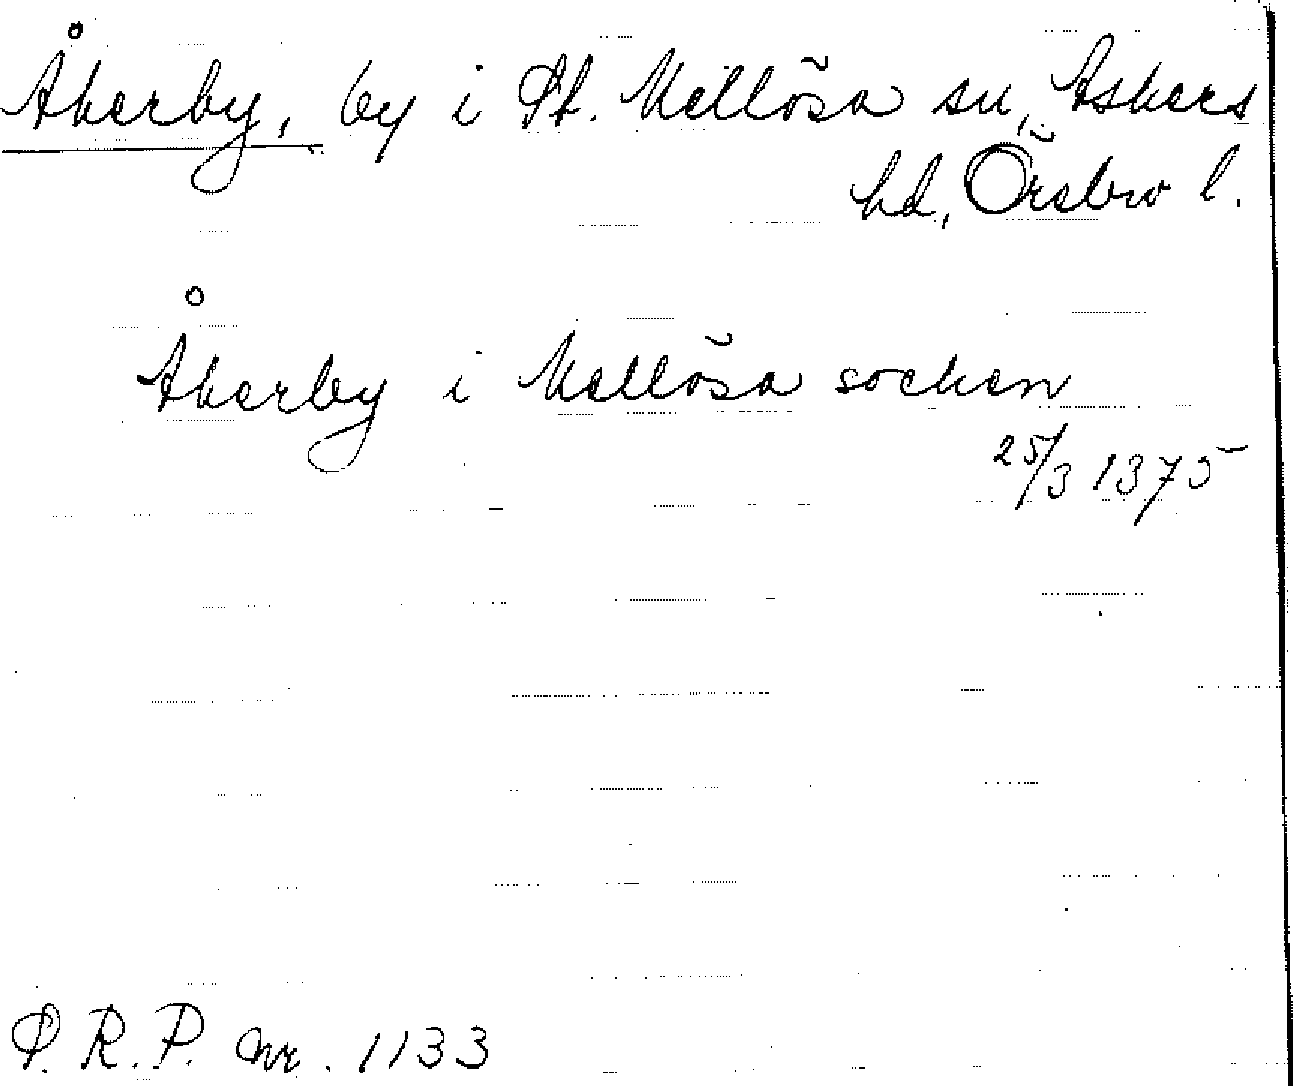 Åkerby, by i St. Mellösa sn, Askers
hd, Örebro l.
Åkerby i Mellösa socken
25/3 1375
S. R. P. nr. 1133